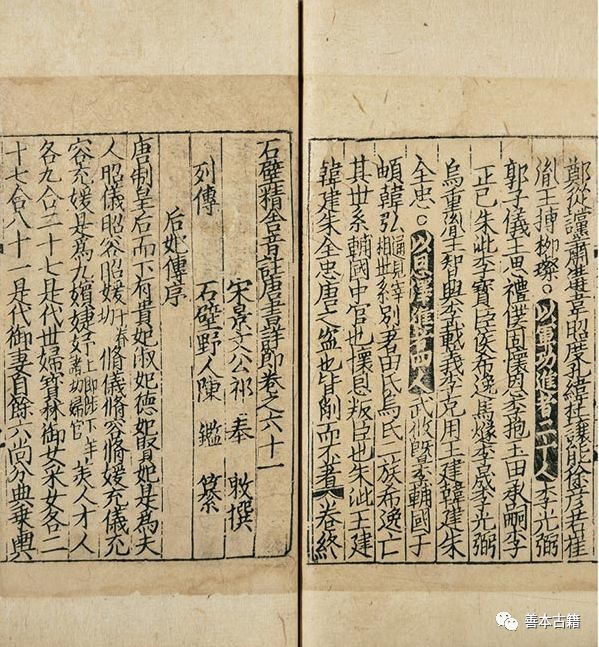 鄭從讜蕭遘韋昭度孔緯杜讓能徐彥若崔
胤王摶栁璨。以軍功進者二十人李光弼
郭子儀王思禮僕固懷恩李抱玉田承嗣李
正己朱泚李寶臣侯希逸馬燧李晟李光弼
烏重胤王智興李載義李克用王建韓建朱
全忠。以恩澤進者四人武攸暨李輔國于
頔韓弘別著田氏烏氏一族希逸亡
其世系輔國中官也懷恩叛臣也朱泚王建
韓建朱全忠唐之盜也皆削而不著 卷終
石壁精舍音註唐書詳節卷之六十一
宋景文公祁 奉 敕撰
列傳 石壁野人陳 鑑 纂
后妃傳序
唐制皇后而下有貴妃淑妃德妃賢妃是為夫
人昭儀昭容昭媛脩儀脩容脩媛充儀充
容充媛是為九嬪婕妤美人才人
各九合二十七是代世婦寶林御女采女各二
十七合八十一是代御妻自餘六尚分典乗輿
善本古籍